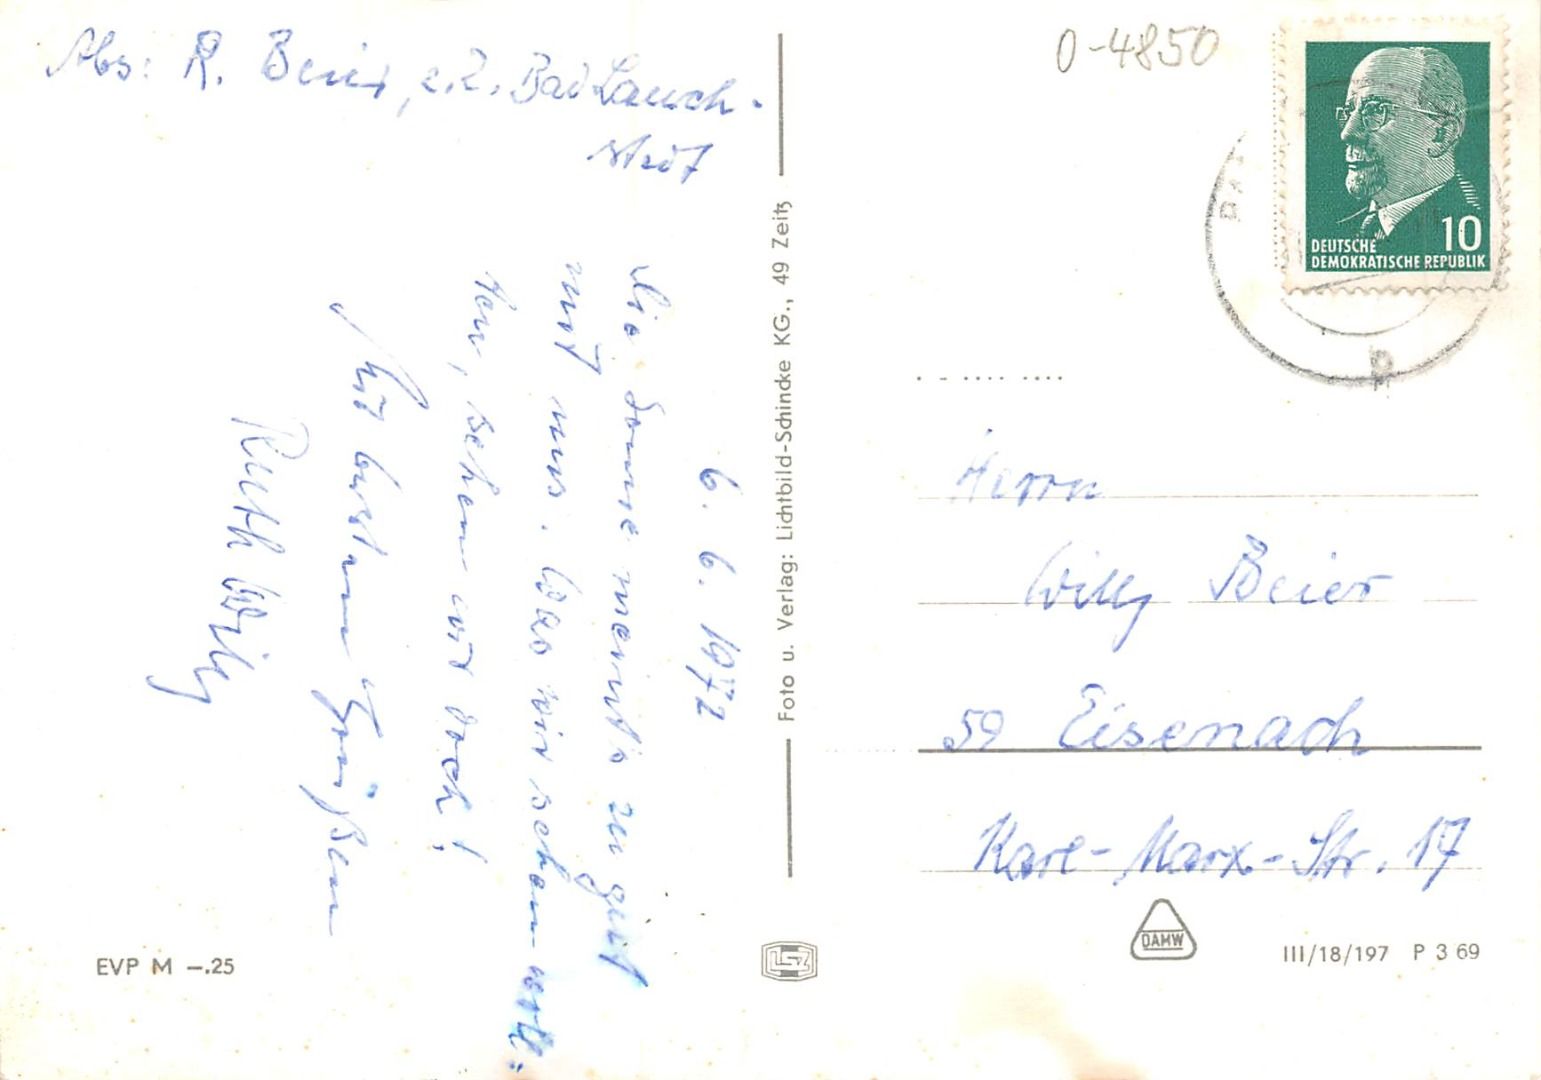 Abs: R. Beier, z. Z. Bad Lauch-
städt
6. 6. 1972
Die Sonne meint's zu gut
mit uns. Was wir sehen wol=
len, sehen wir doch!
Mit besten Grüßen
Ruth Willy
EVP M –.25
Foto u. Verlag: Lichtbild-Schindke KG., 49 Zeitz
0-4850
DEUTSCHE
DEMOKRATISCHE REPUBLIK
10
Herrn
Willy Beier
59 Eisenach
Karl-Marx-Str. 17
DAMW
III/18/197 P 3 69